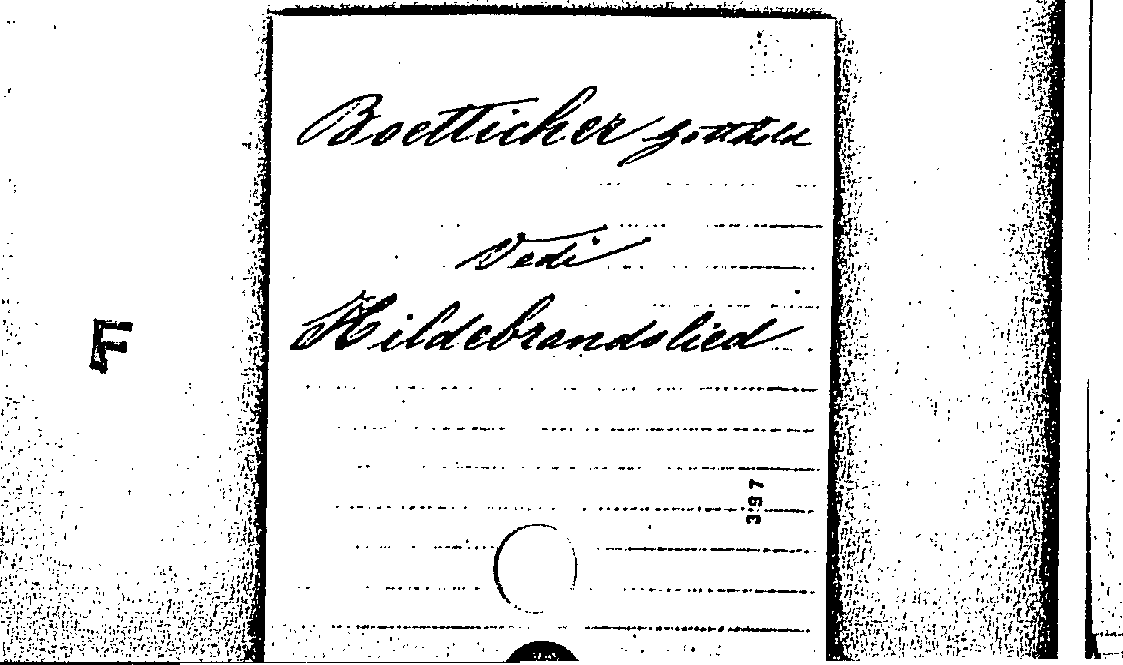 Boetticher Gotthold
Vedi
Hildebrandslied
F
397